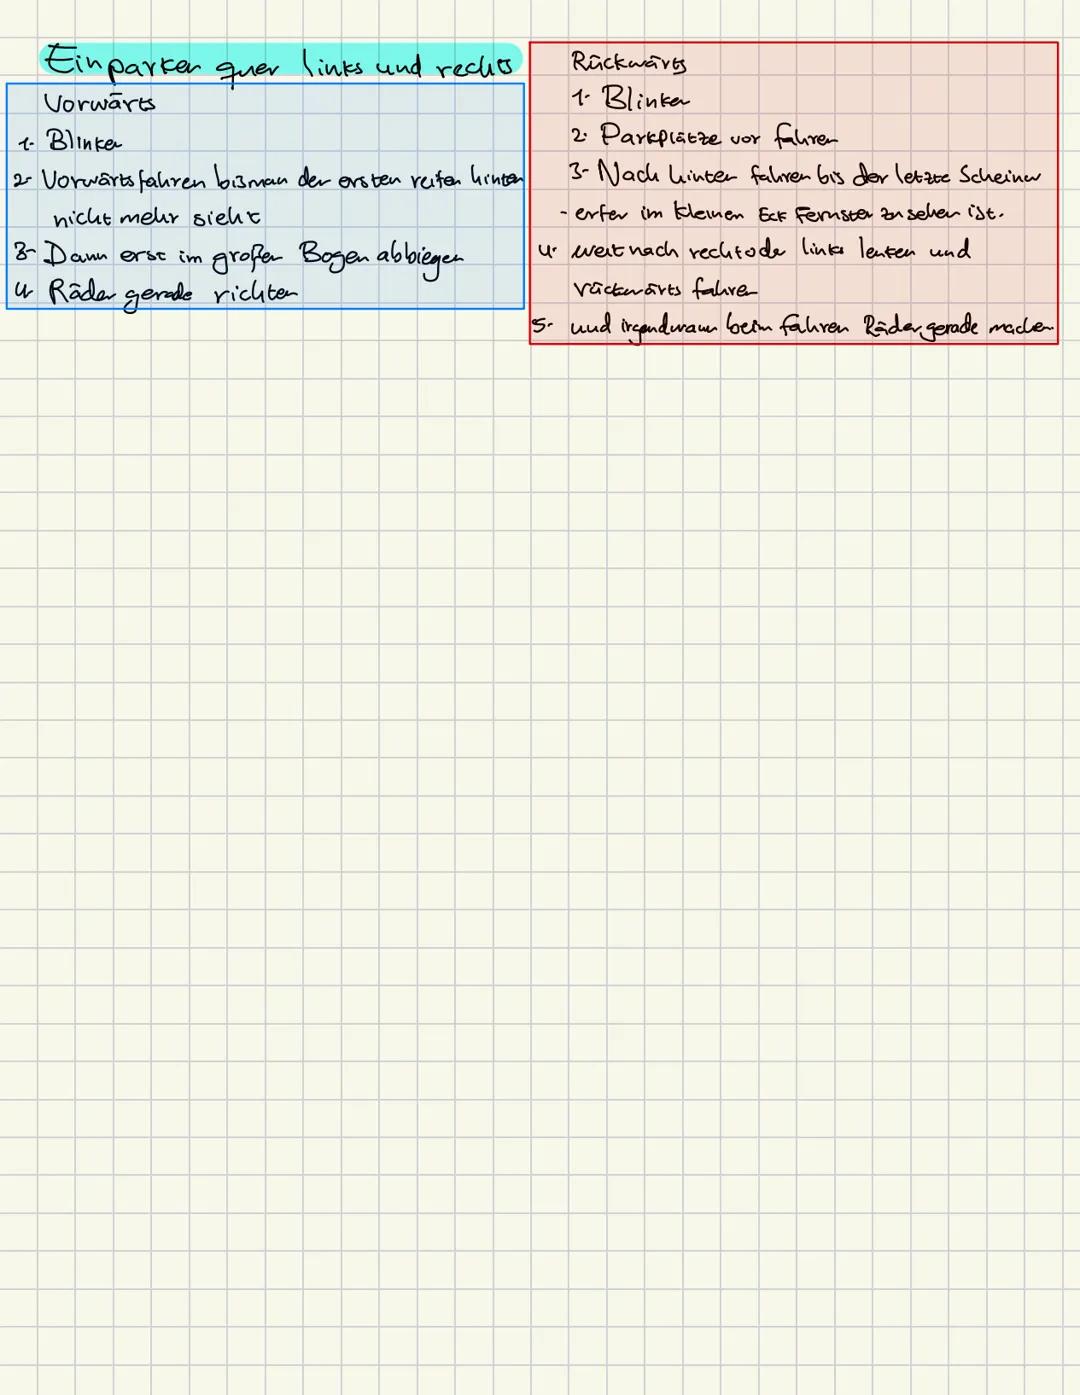 Einparken quer links und rechts
Vorwärts
1- Blinker
2- Vorwärtsfahren bis man der ersten reifen hinten
nicht mehr sieht
3- Dann erst im großen Bogen abbiegen
4 Räder gerade richten
Rückwärts
1- Blinker
2. Parkplätze vor fahren
3- Nach hinter fahren bis der letzte Scheinw
- erfer im kleinen Eck Fernster zu sehen ist.
4. weit nach recht ode links lenken und
rückwärts fahren
5- und irgendwann beim fahren Räder gerade machen